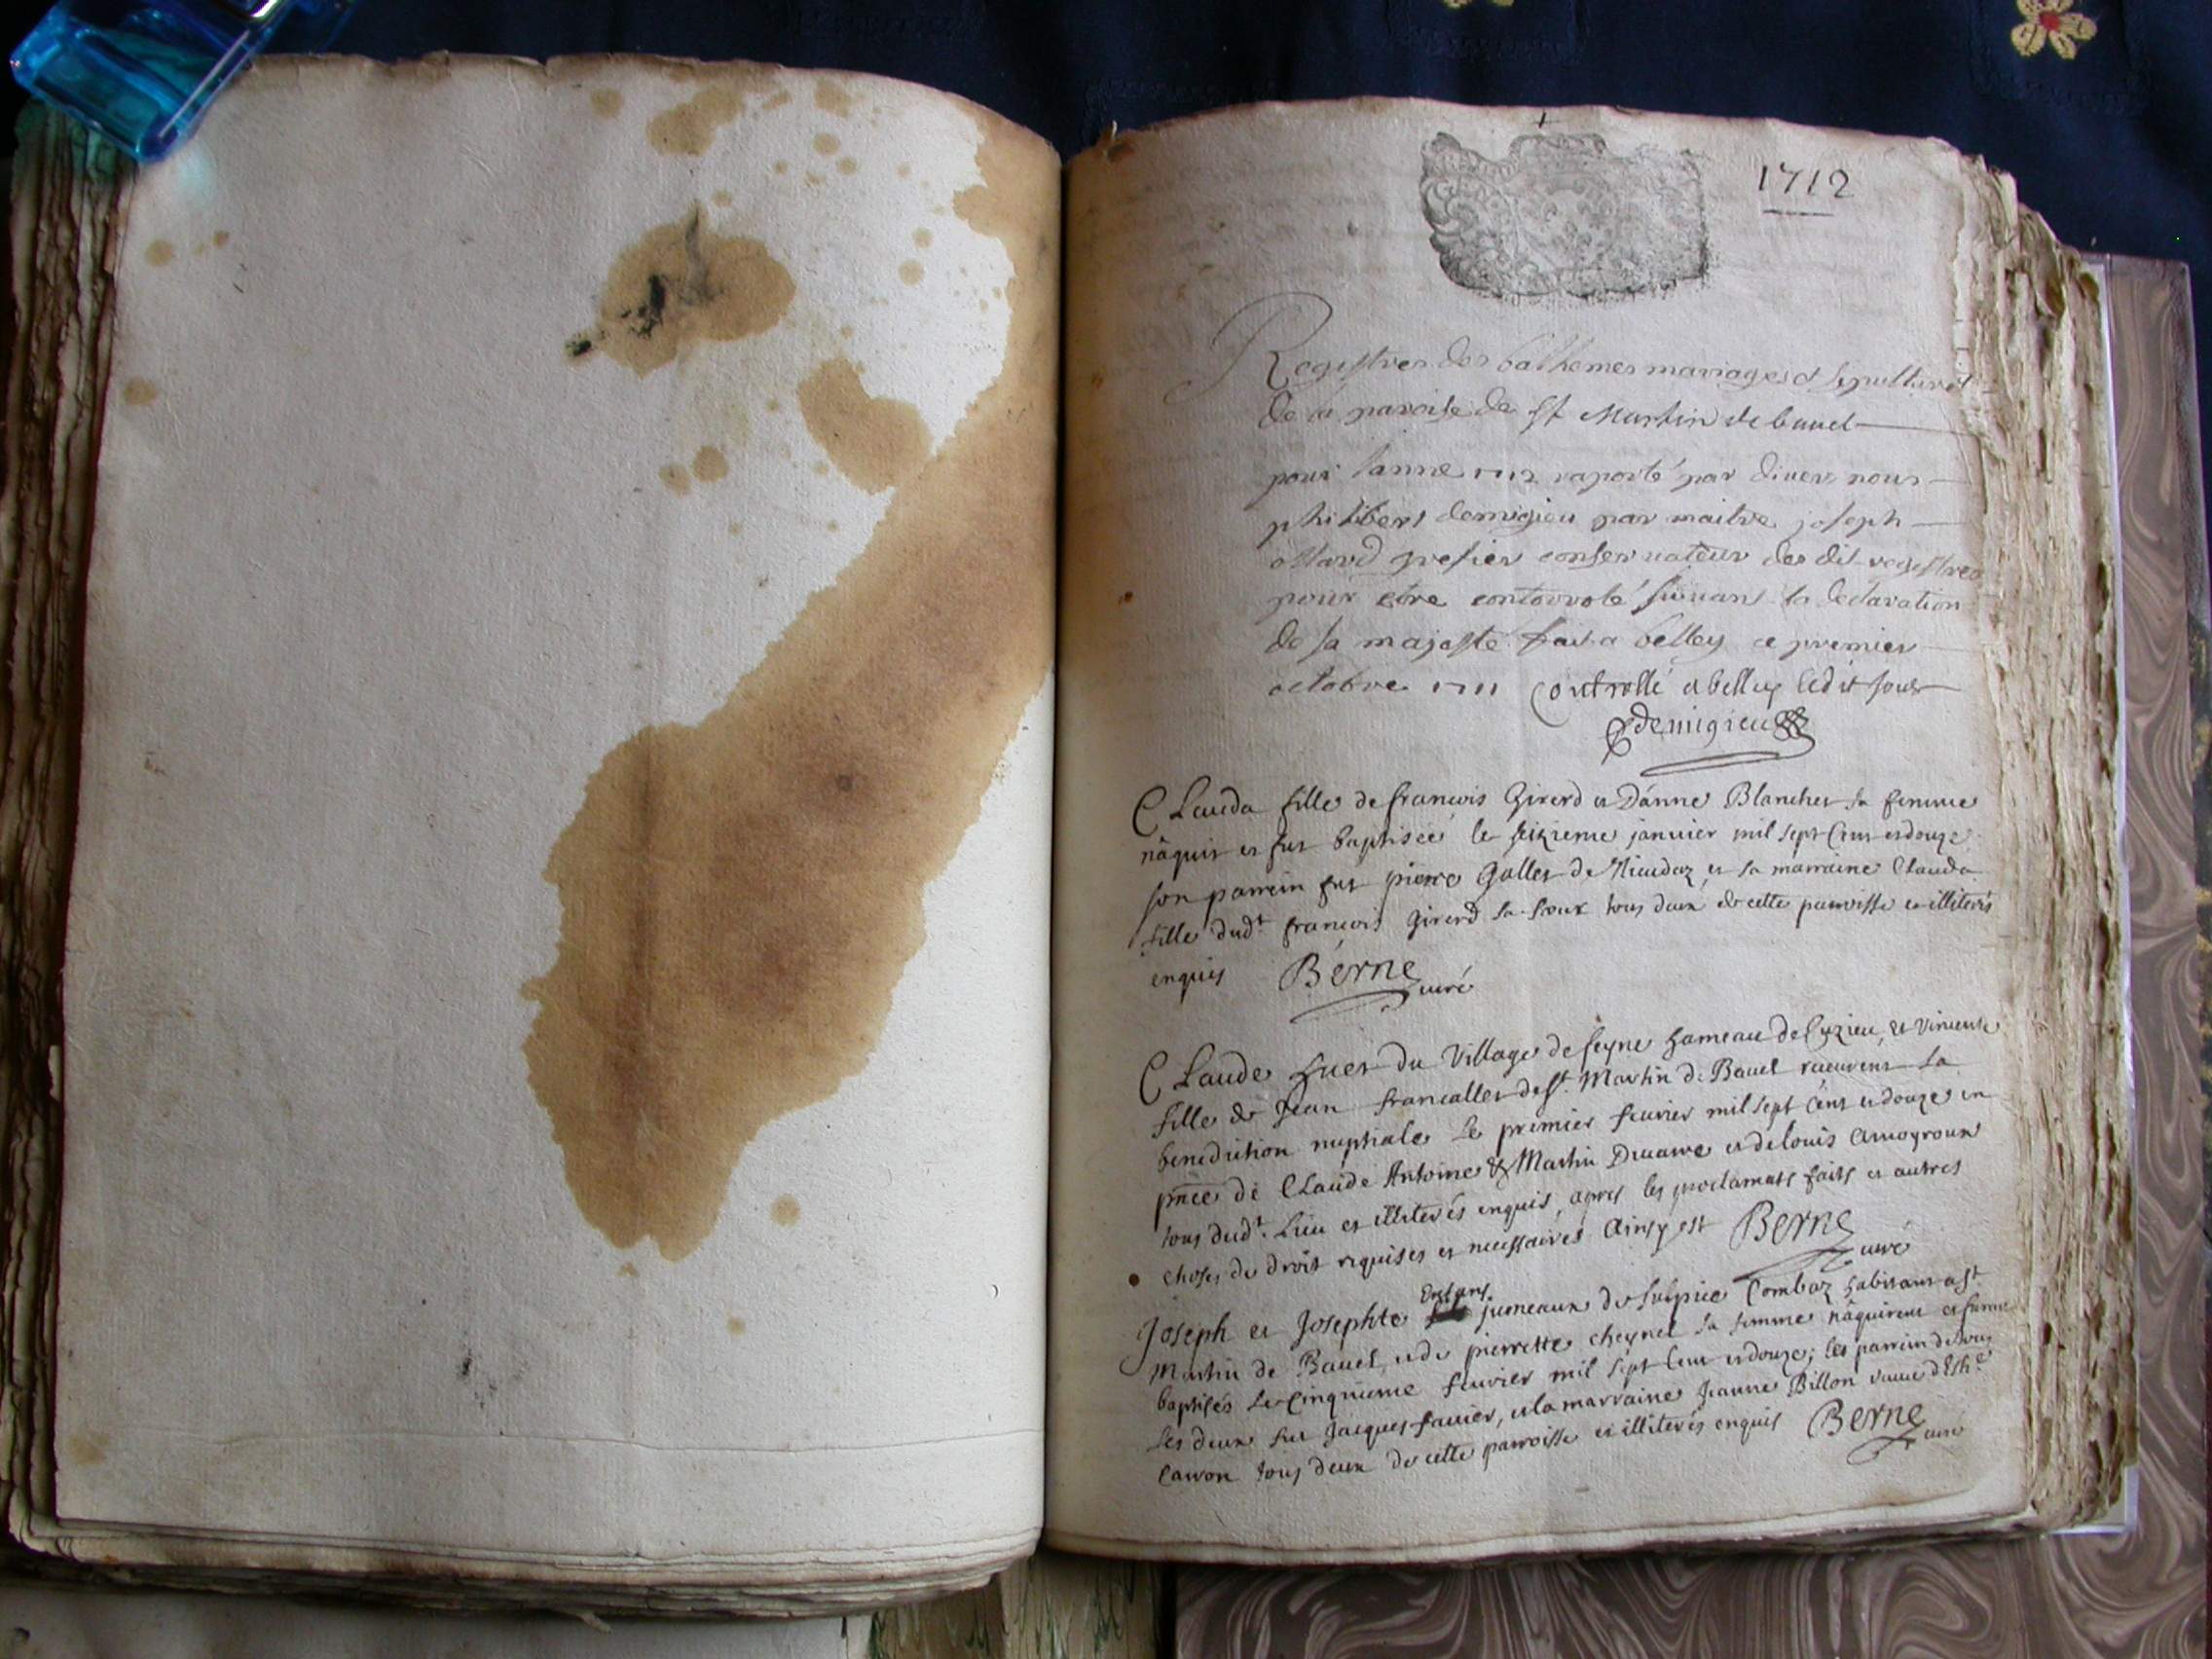 1712
Registres des bathemes mariages et sepultures
de la paroise de st Martin de bauel
pour lanne 1712 raporté par diuers nous
philibert demigieu par maitre joseph
ollard grefier conseruateur des dit registres
pour etre controlé suiuant la declaration
de sa majesté fait a belley ce premier
octobre 1711 Controllé a belley ledit jour
demigieu
Clauda fille de francois Girerd et Danne Blanchet sa femme
nâquit et fut baptisée le seizieme januier mil sept Cent et douze
son parrein fut pierre Gallet de et sa marraine Clauda
fille dudt francois Girerd sa soeur tous deux de cette parroisse et illiterés
enquis Berne curé
Claude huet du Village de seyne hameau de Cuzieu, et Vincente
fille de Jean francallet de st. Martin de Bauel receurent la
benediction nuptiale le premier feurier mil sept Cent et douze en
pnce de Claude Antoine & Martin et de louis
tous dudt. Lieu et illiterés enquis, apres les proclamats faits et autres
choses de droit requises et necessaires Ainsy est Berne curé
Joseph et Josephte Enfans jumeaux de sulpice Combaz habitant a st
Martin de Bauel, et de pierrette cheynel sa femme nâquirent et furent
baptisés le Cinquieme feurier mil sept Cent et douze; les parrein de tous
les deux fut Jacques fauier, et la marraine Jeanne Billon veuue
Carron tous deux de cette parroisse et illiterés enquis Berne curé